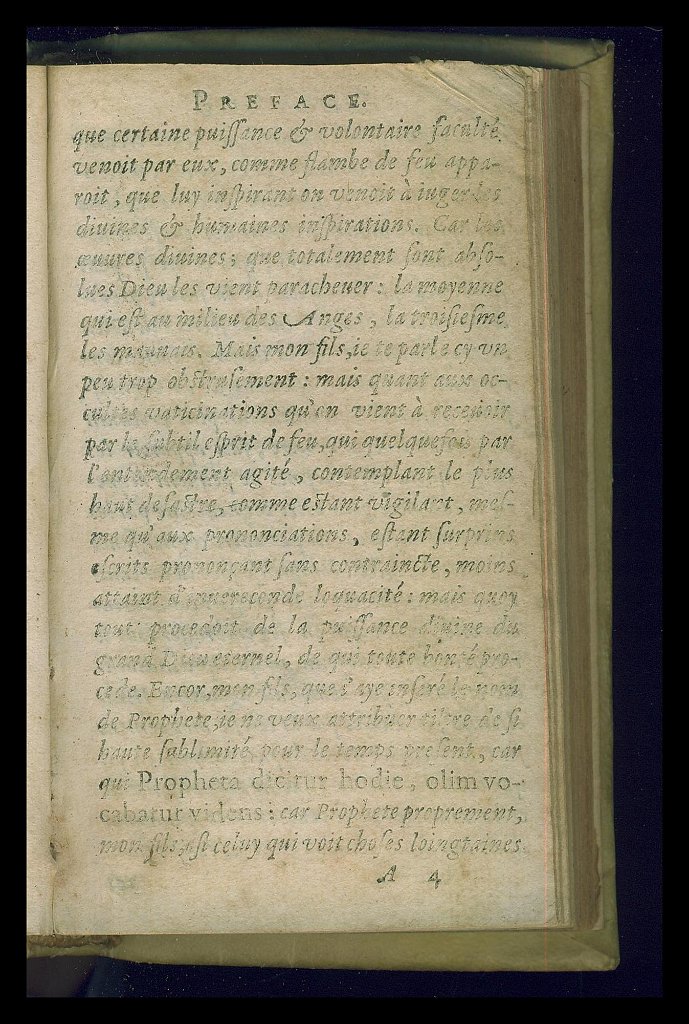 PREFACE.
que certaine puiſſance & volontaire faculté
venoit par eux, comme flambe de feu appa-
roit, que luy inſpirant on venoit à iuger les
diuines & humaines inſpirations. Car les
œuures diuines, que totalement ſont abſo-
lues Dieu les vient paracheuer: la moyenne
qui eſt au milieu des Anges, la troiſieſme
les mauuais. Mais mon fils, ie te parle cy vn
peu trop obſtruſement: mais quant aux oc-
cultes vaticinations qu'on vient à receuoir
par le ſubtil eſprit de feu, qui quelquefois par
l'entendement agité, contemplant le plus
haut des aſtre, comme eſtant vigilant, meſ-
me qu'aux prononciations, eſtant ſurprins
eſcrits prononçant ſans contraincte, moins
attaint d'inuereconde loquacité: mais quoy
tout procedoit de la puiſſance diuine du
grand Dieu eternel, de qui toute bonté pro-
cede. Encor, mon fils, que i'aye inſeré le nom
de Prophete, ie ne veux attribuer tiltre de ſi
haute ſublimité pour le temps preſent, car
qui Propheta dicitur hodie, olim vo-
cabatur videns: car Prophete proprement,
mon fils, eſt celuy qui voit choſes loingtaines
A 4